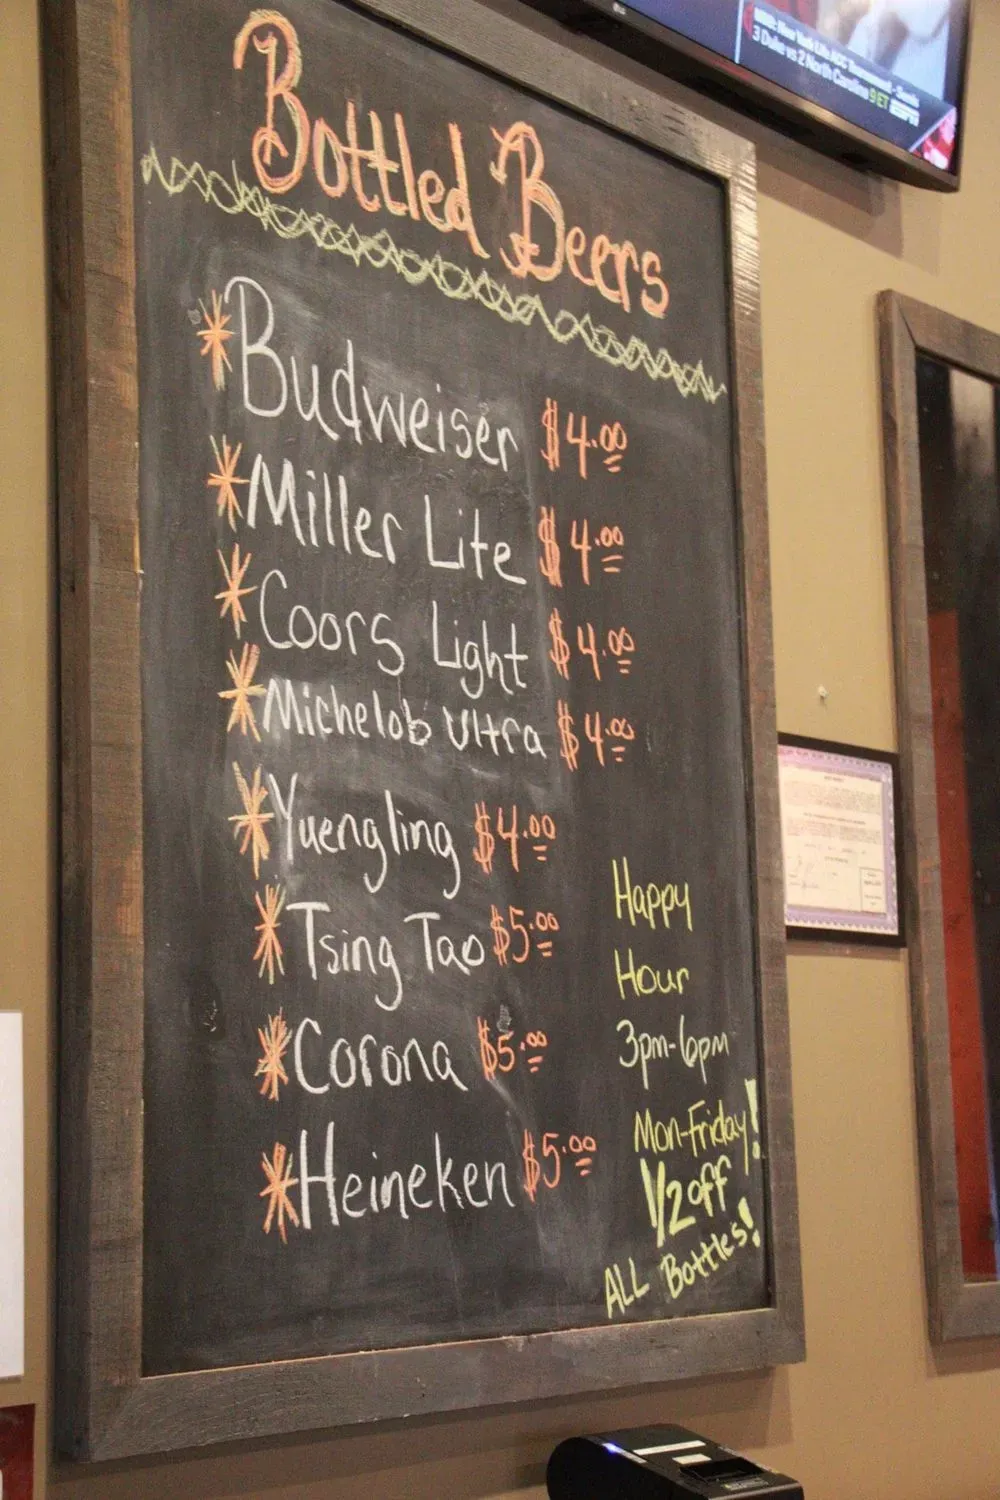 NCB: New York Life ACC Tournament - Semis
3 Duke vs 2 North Carolina 9 ET ESPN
Bottled Beers
Budweiser $4.00
Miller Lite $4.00
Coors Light $4.00
Michelob Ultra $4.00
Yuengling $4.00
Tsing Tao $5.00
Corona $5.00
Heineken $5.00
Happy
Hour
3pm-6pm
Mon-Friday!
1/2 off
ALL Bottles!